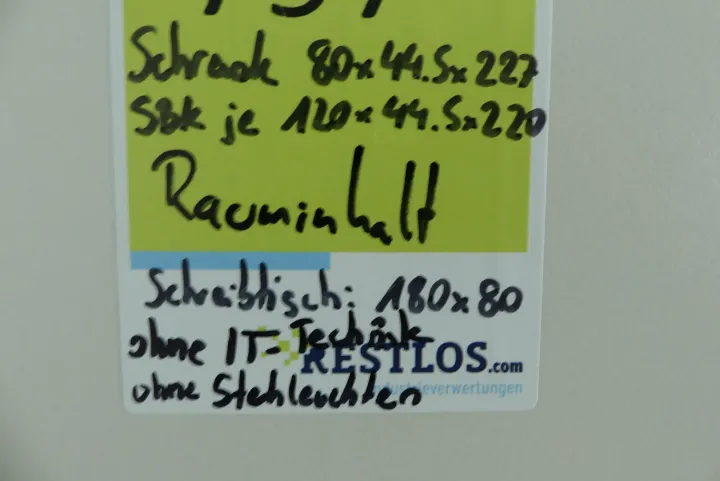 Schrank 80x44.5x227
SBK je 120x44.5x220
Rauminhalt
Schreibtisch: 180x80
ohne IT-Technik
RESTLOS.com
industrieverwertungen
ohne Stehleuchten